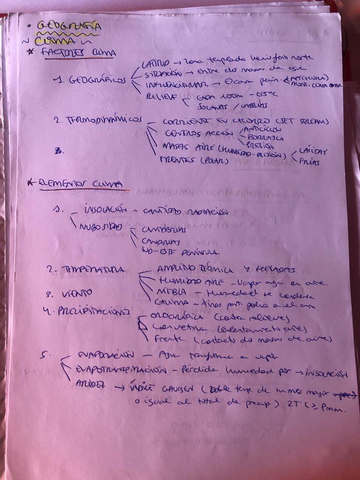 GEOGRAFÍA
CLIMA
* FACTORES CLIMA
LATITUD → zona templada hemisferio norte
SITUACIÓN → entre dos masas de
1. GEOGRÁFICOS
INFLUENCIA MAR → Escasa penín (
RELIEVE
SOLANAS / UMBRÍAS
2. TERMODINÁMICOS
CORRIENTE EN CHORRO (JET STREAM)
CENTROS ACCIÓN
ANTICICLÓN
BORRASCA
PRESIÓN
3.
MASAS AIRE (HUMEDAD - PRESIÓN)
CÁLIDAS
FRÍAS
FRENTES (POLAR)
* ELEMENTOS CLIMA
1.
INSOLACIÓN - CANTIDAD RADIACIÓN
NUBOSIDAD
CANTÁBRICO
CANARIAS
PENÍNSULA
2. TEMPERATURA
AMPLITUD TÉRMICA Y HELADAS
HUMEDAD AIRE - Vapor agua en aire
3. VIENTO
NIEBLA - Humedad se condensa
CALIMA - finos polvo
4. PRECIPITACIONES
OROGRÁFICA (contra relieve)
Convectiva (calentamiento aire)
Frente (contacto dos masas de aire)
5.
EVAPORACIÓN - Agua transforma a vapor
EVAPOTRANSPIRACIÓN - Pérdida humedad por → INSOLACIÓN
ARIDEZ → ÍNDICE GAUSSEN (Doble temp de un mes mayor
o igual al total de precip) 2T (≥ Pmm